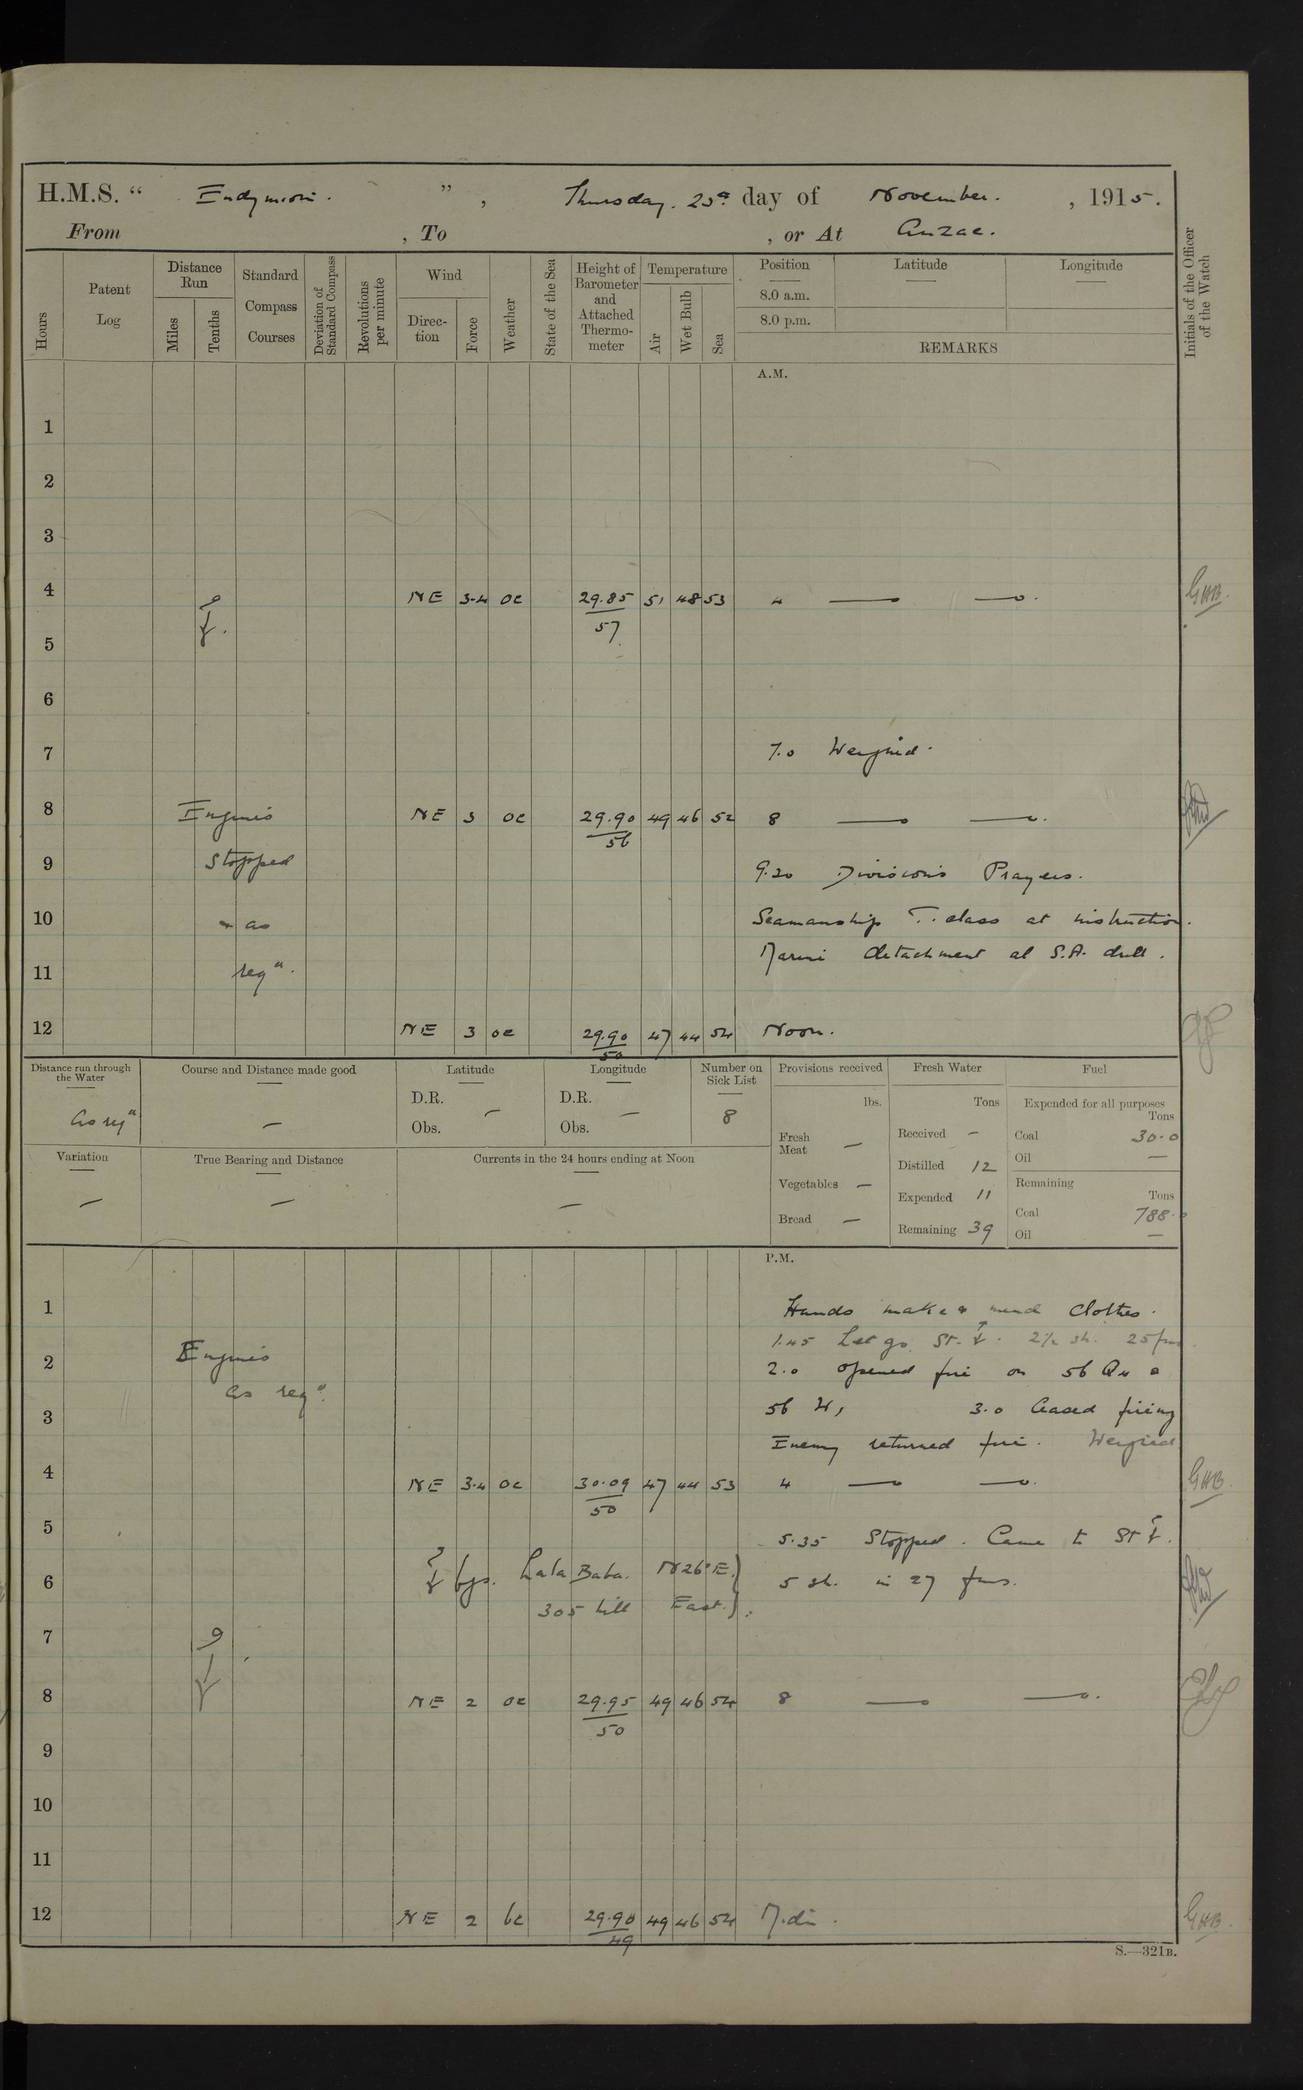 H.M.S. “ Endymion. ”, Thursday. 25th day of November. , 1915.
From , To , or At Anzac.
Hours
Patent Log
Distance Run
Miles
Tenths
Standard Compass Courses
Deviation of Standard Compass
Revolutions per minute
Wind
Direction
Force
Weather
State of the Sea
Height of Barometer and Attached Thermometer
Temperature
Air
Wet Bulb
Sea
Position
8.0 a.m.
8.0 p.m.
Latitude
Longitude
REMARKS
Initials of the Officer of the Watch
A.M.
1
2
3
4 NE 3-4 oc 29.85 51 48 53 4 GHB.
57
5
6
7 7.0 Weighed.
8 Engines NE 3 oc 29.90 49 46 52 8
56
9 Stopped 9.20 Divisions Prayers.
10 & as Seamanship T. class at instruction.
Marine detachment at S.A. drill.
11 reqd.
12 NE 3 oc 29.90 47 44 54 Noon.
50
Distance run through the Water
As reqd
Course and Distance made good
—
Latitude
D.R. —
Obs.
Longitude
D.R. —
Obs.
Number on Sick List
8
Variation
—
True Bearing and Distance
—
Currents in the 24 hours ending at Noon
—
Provisions received
lbs.
Fresh Meat —
Vegetables —
Bread —
Fresh Water
Tons
Received —
Distilled 12
Expended 11
Remaining 39
Fuel
Expended for all purposes
Tons
Coal 30.0
Oil —
Remaining
Tons
Coal 788.0
Oil —
P.M.
1 Hands make & mend clothes.
1.45 Let go St. 2½ sh. 25 fms.
2 Engines 2.0 opened fire on 56 Q4 &
as reqd.
3 56 W, 3.0 Ceased firing
Enemy returned fire. Weighed
4 NE 3-4 oc 30.09 47 44 53 4 GHB
50
5 5.35 Stopped. Came to St
6 bgs. Lala Baba. N26°E. 5 sh. in 27 fms.
305 hill East.
7
8 NE 2 oc 29.95 49 46 54 8
50
9
10
11
12 NE 2 bc 29.90 49 46 54 Mdt. GHB.
49
S.—321B.